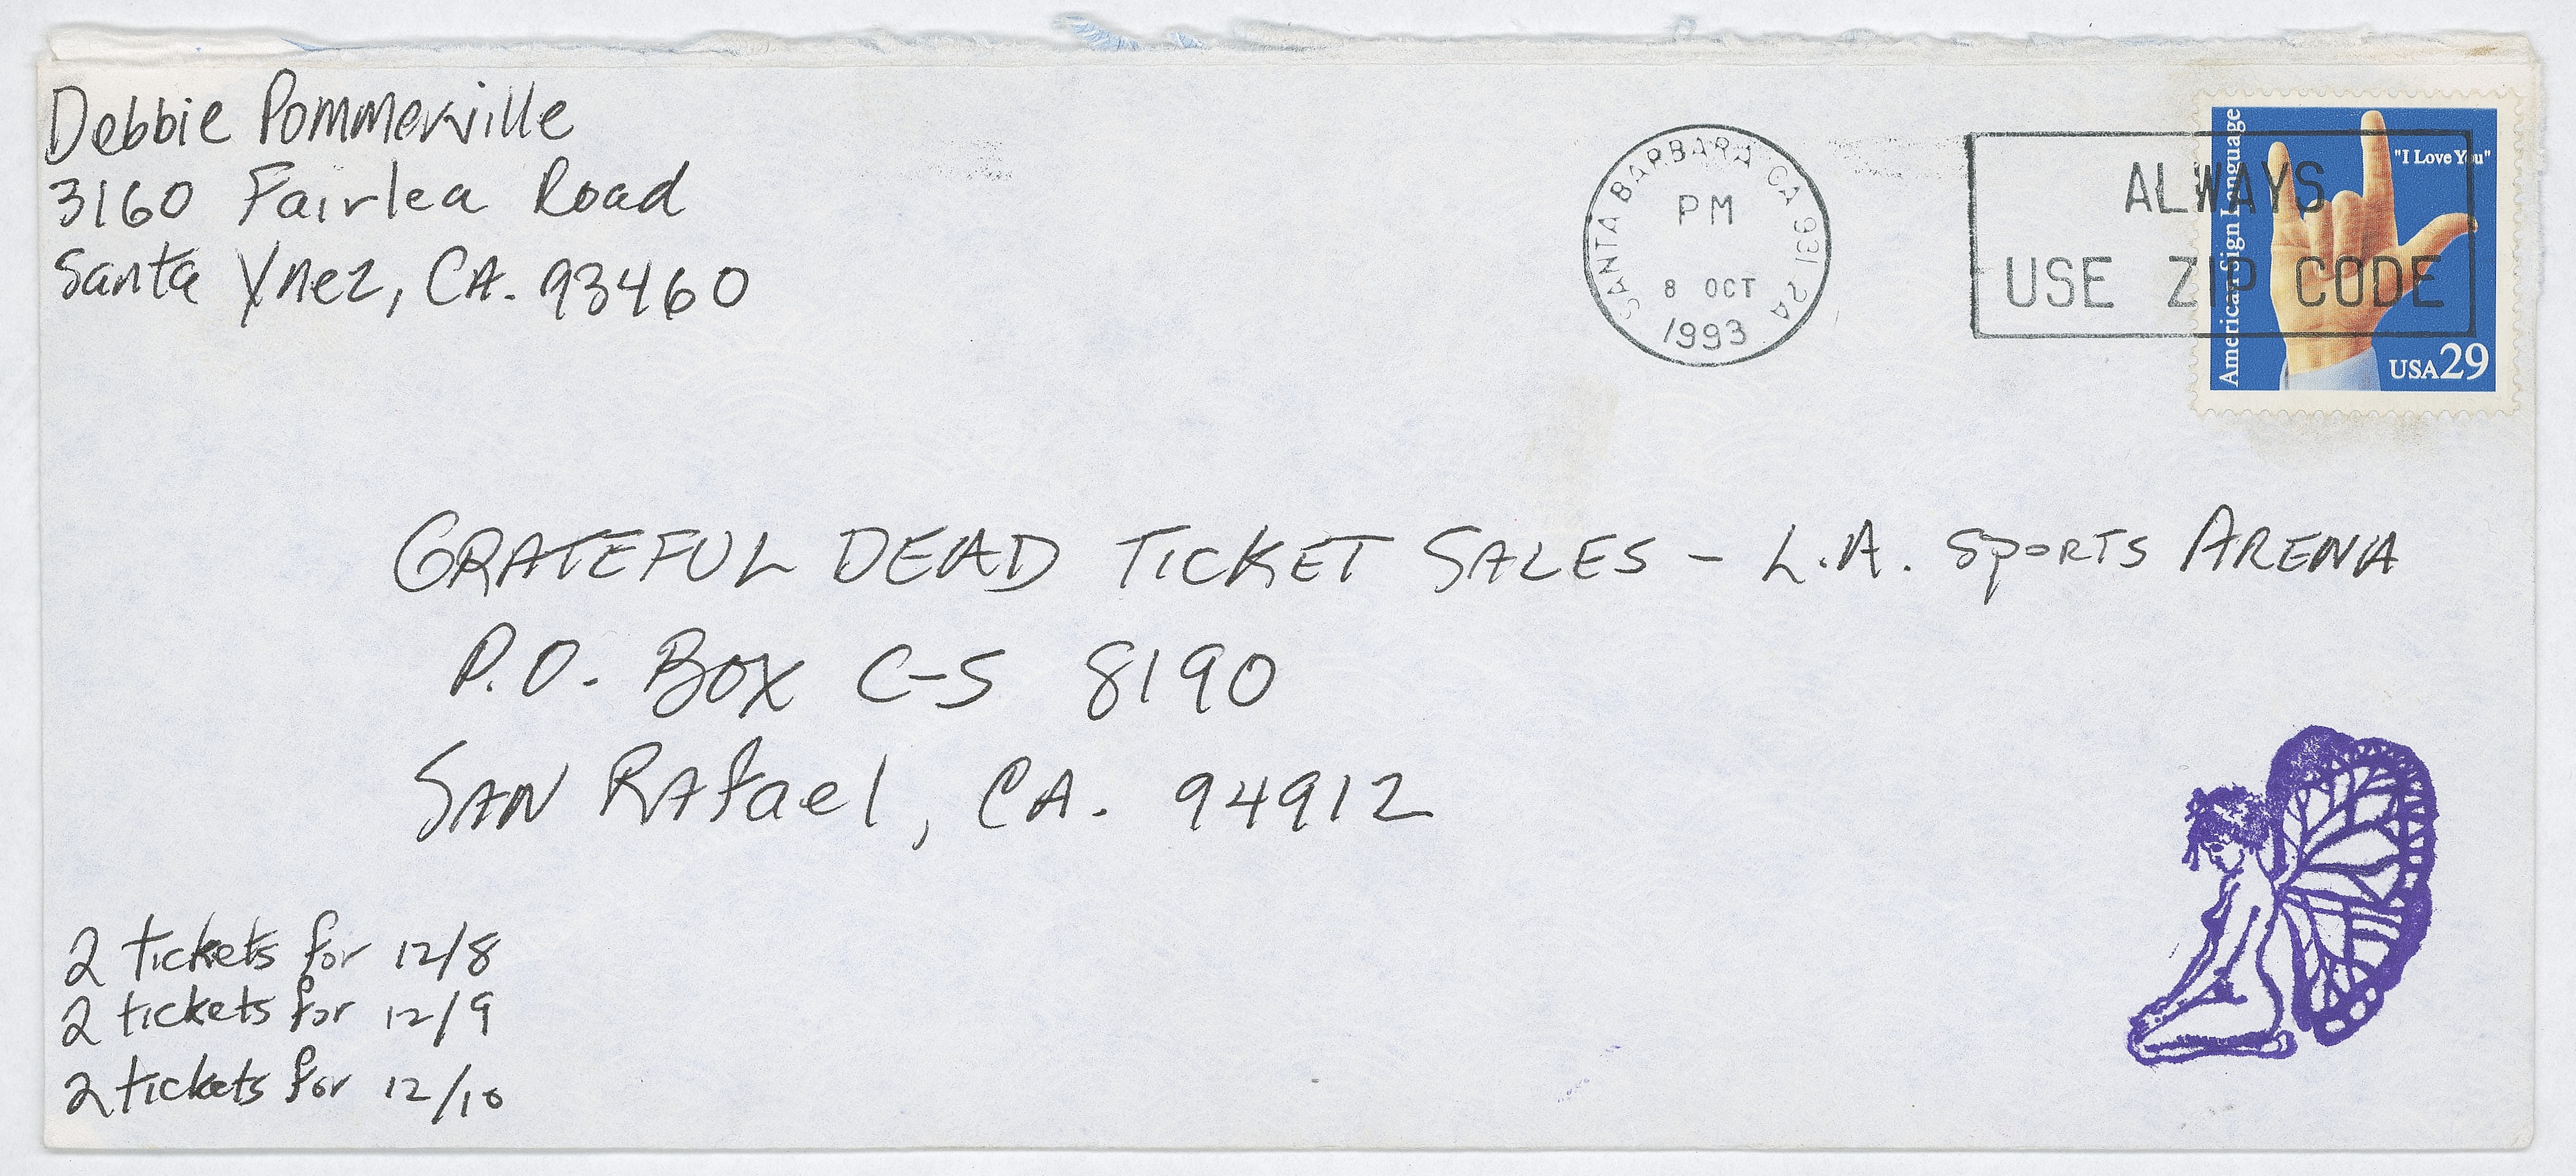 Debbie Pommerville
3160 Fairlea Road
Santa Ynez, CA. 93460
SANTA BARBARA CA 931 2A
PM
8 OCT
1993
ALWAYS
USE ZIP CODE
American Sign Language
"I Love You"
USA 29
GRATEFUL DEAD TICKET SALES - L.A. SPORTS ARENA
P.O. BOX C-S 8190
SAN RAfael, CA. 94912
2 tickets for 12/8
2 tickets for 12/9
2 tickets for 12/10